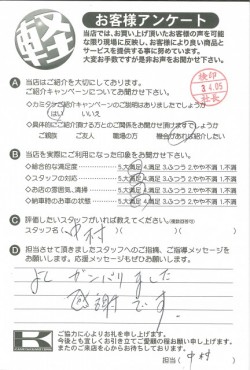 軽
お客様アンケート
当店では、お買い上げ頂いたお客様の声を可能
な限り現場に反映し、お客様により良い商品と
サービスを提供する事に努めています。
大変お手数ですが是非お声をお聞かせ下さい。
検印
3.4.05
社長
A 当店はご紹介を大切にしております。
ご紹介キャンペーンについてお聞かせ下さい。
◇カミタケご紹介キャンペーンのご説明はありましたでしょうか
はい いいえ
◇具体的にご紹介頂ける方とのご関係をお聞かせ頂けますでしょうか
ご親族 ご友人 職場の方 機会があれば紹介したい
B 当店を実際にご利用になった印象をお聞かせ下さい。
◇総合的な満足度 5.大満足 4.満足 3.ふつう 2.やや不満 1.不満
◇スタッフの対応 5.大満足 4.満足 3.ふつう 2.やや不満 1.不満
◇お店の雰囲気、清掃 5.大満足 4.満足 3.ふつう 2.やや不満 1.不満
◇納車時のお車の状態 5.大満足 4.満足 3.ふつう 2.やや不満 1.不満
C 評価したいスタッフがいれば教えてください。(複数回答可)
スタッフ名( 中村 )
D 担当させて頂きましたスタッフへのご指摘、ご指導メッセージを
お願いします。応援メッセージもぜひお願いします。
よし ガンバリました
感謝です
K
ご協力に心よりお礼を申し上げます。
今後とも宜しくお引き立てご愛顧の程お願い申し上げます。
またのご来店を心からお待ちしております。
担当( 中村 )